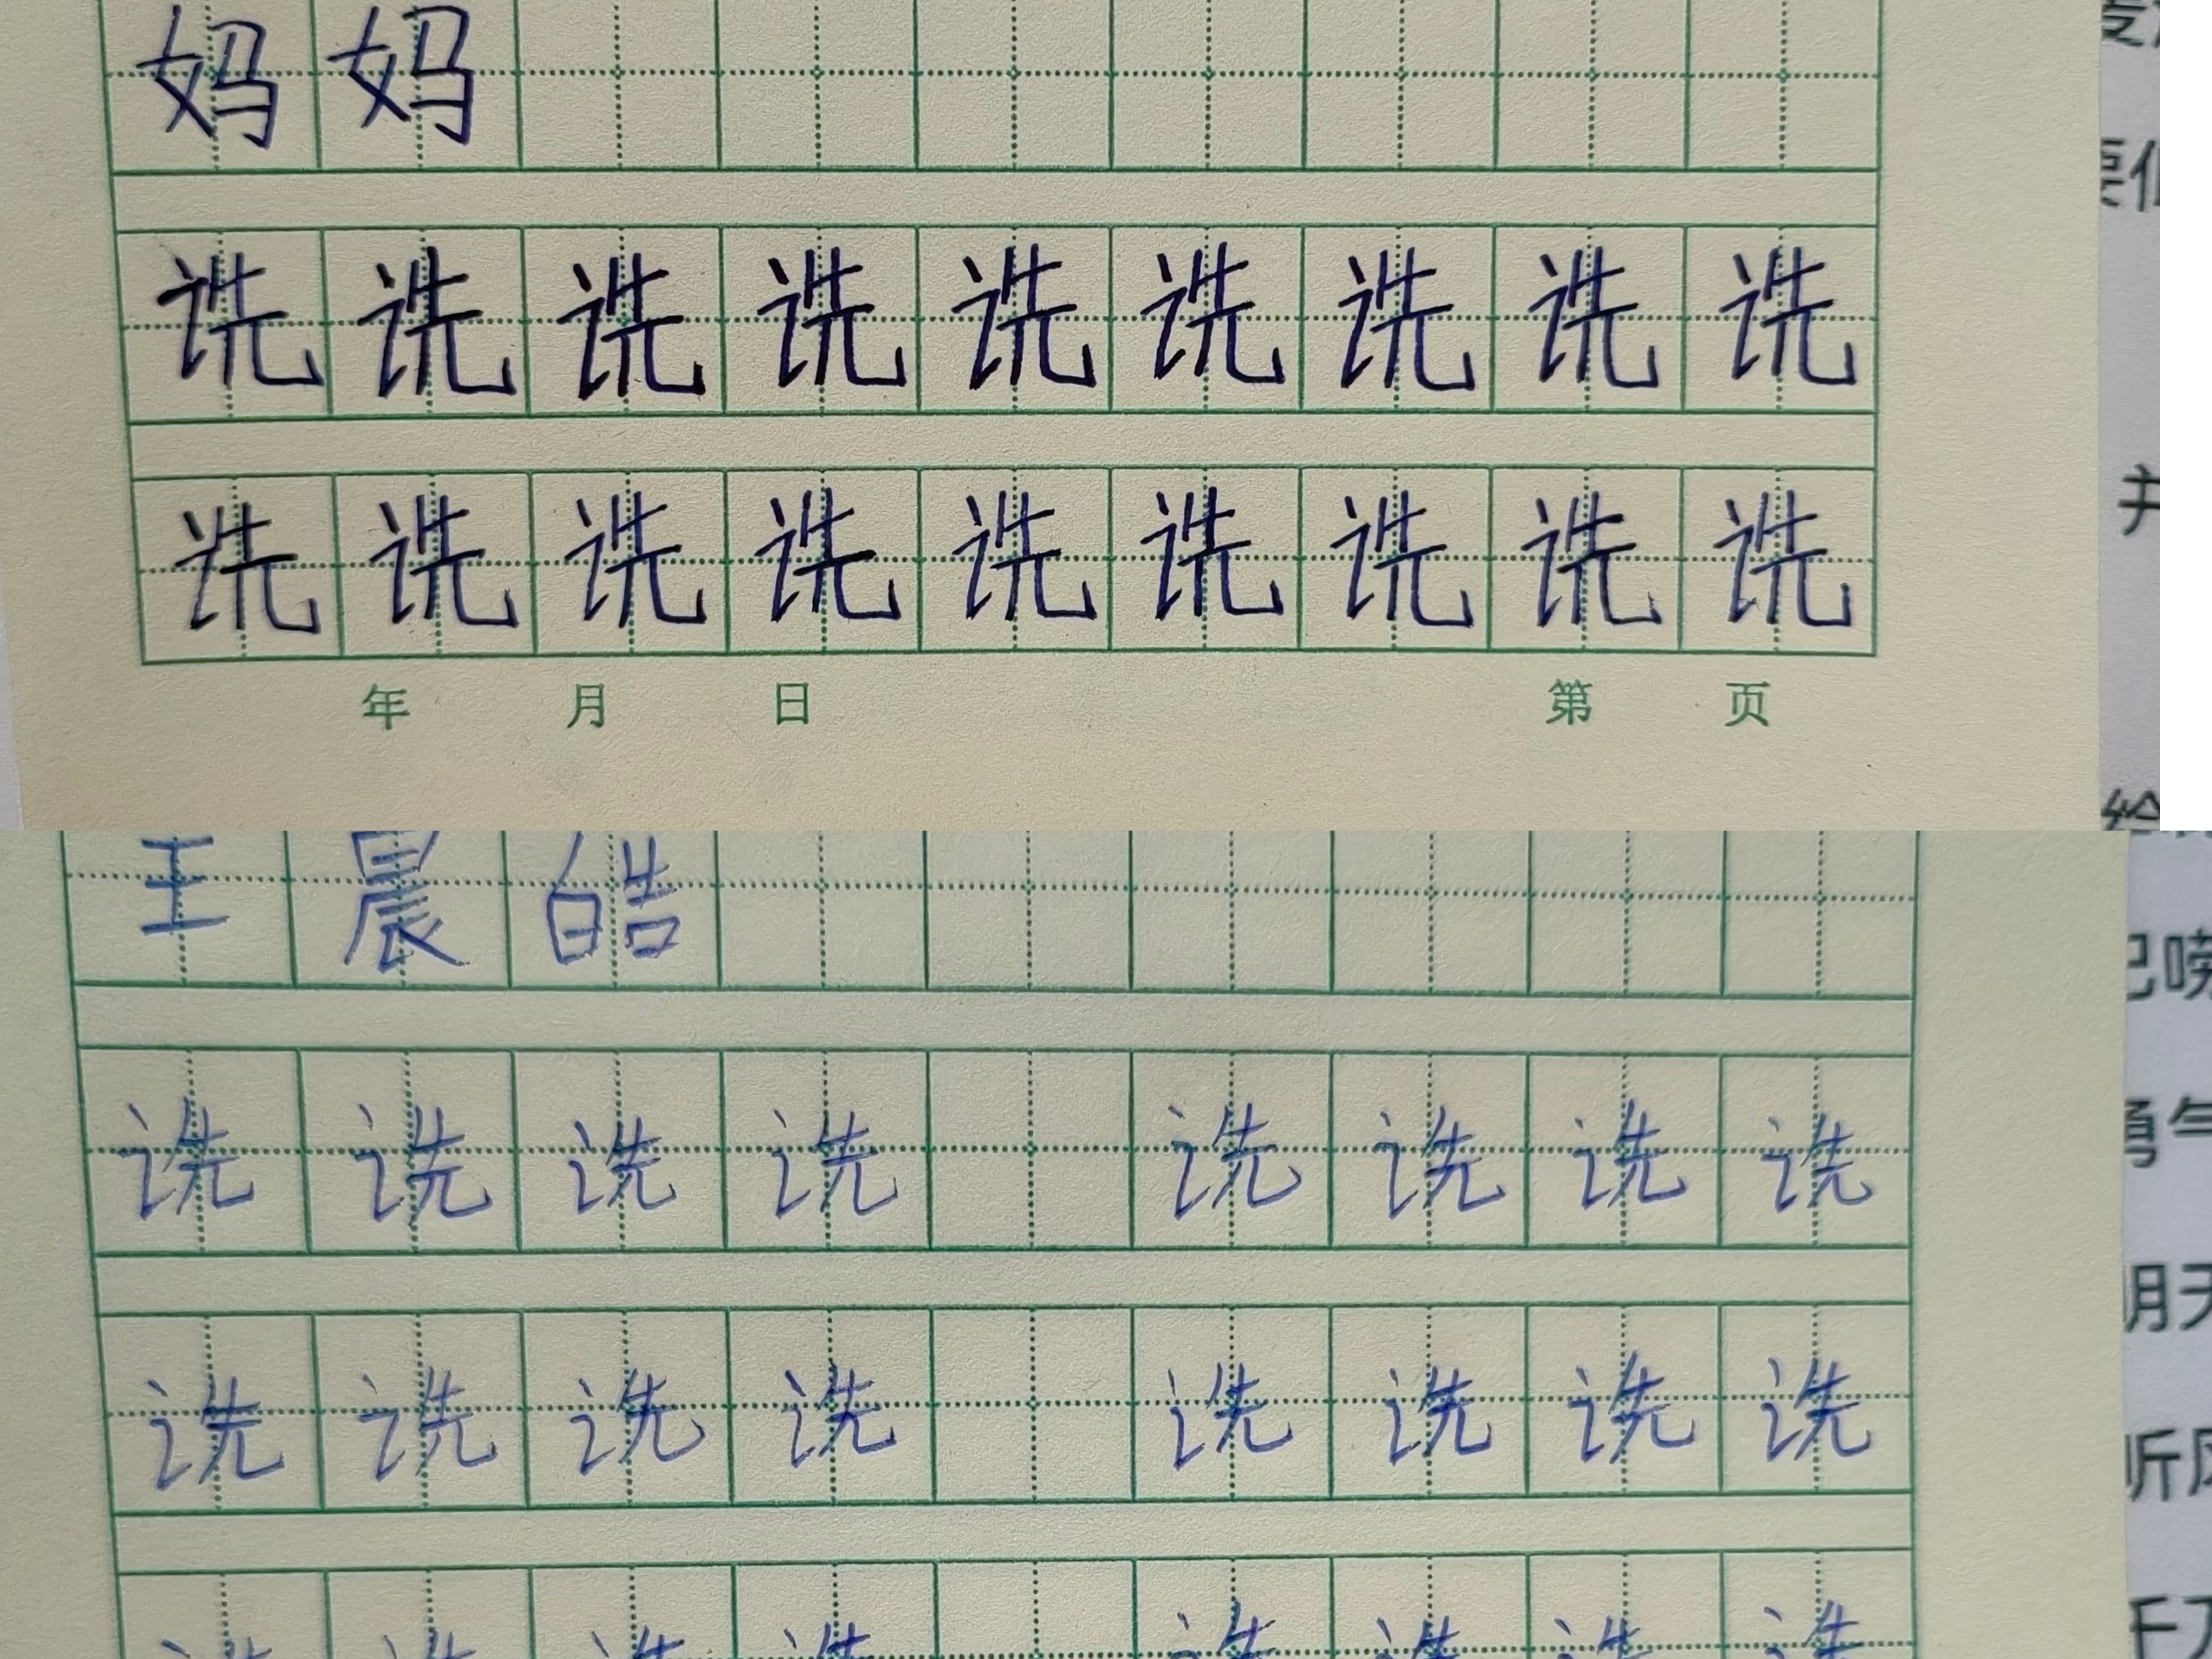 妈妈
诜诜诜诜诜诜诜诜诜
诜诜诜诜诜诜诜诜诜
年 月 日 第 页
王晨皓
诜诜诜诜 诜诜诜诜
诜诜诜诜 诜诜诜诜